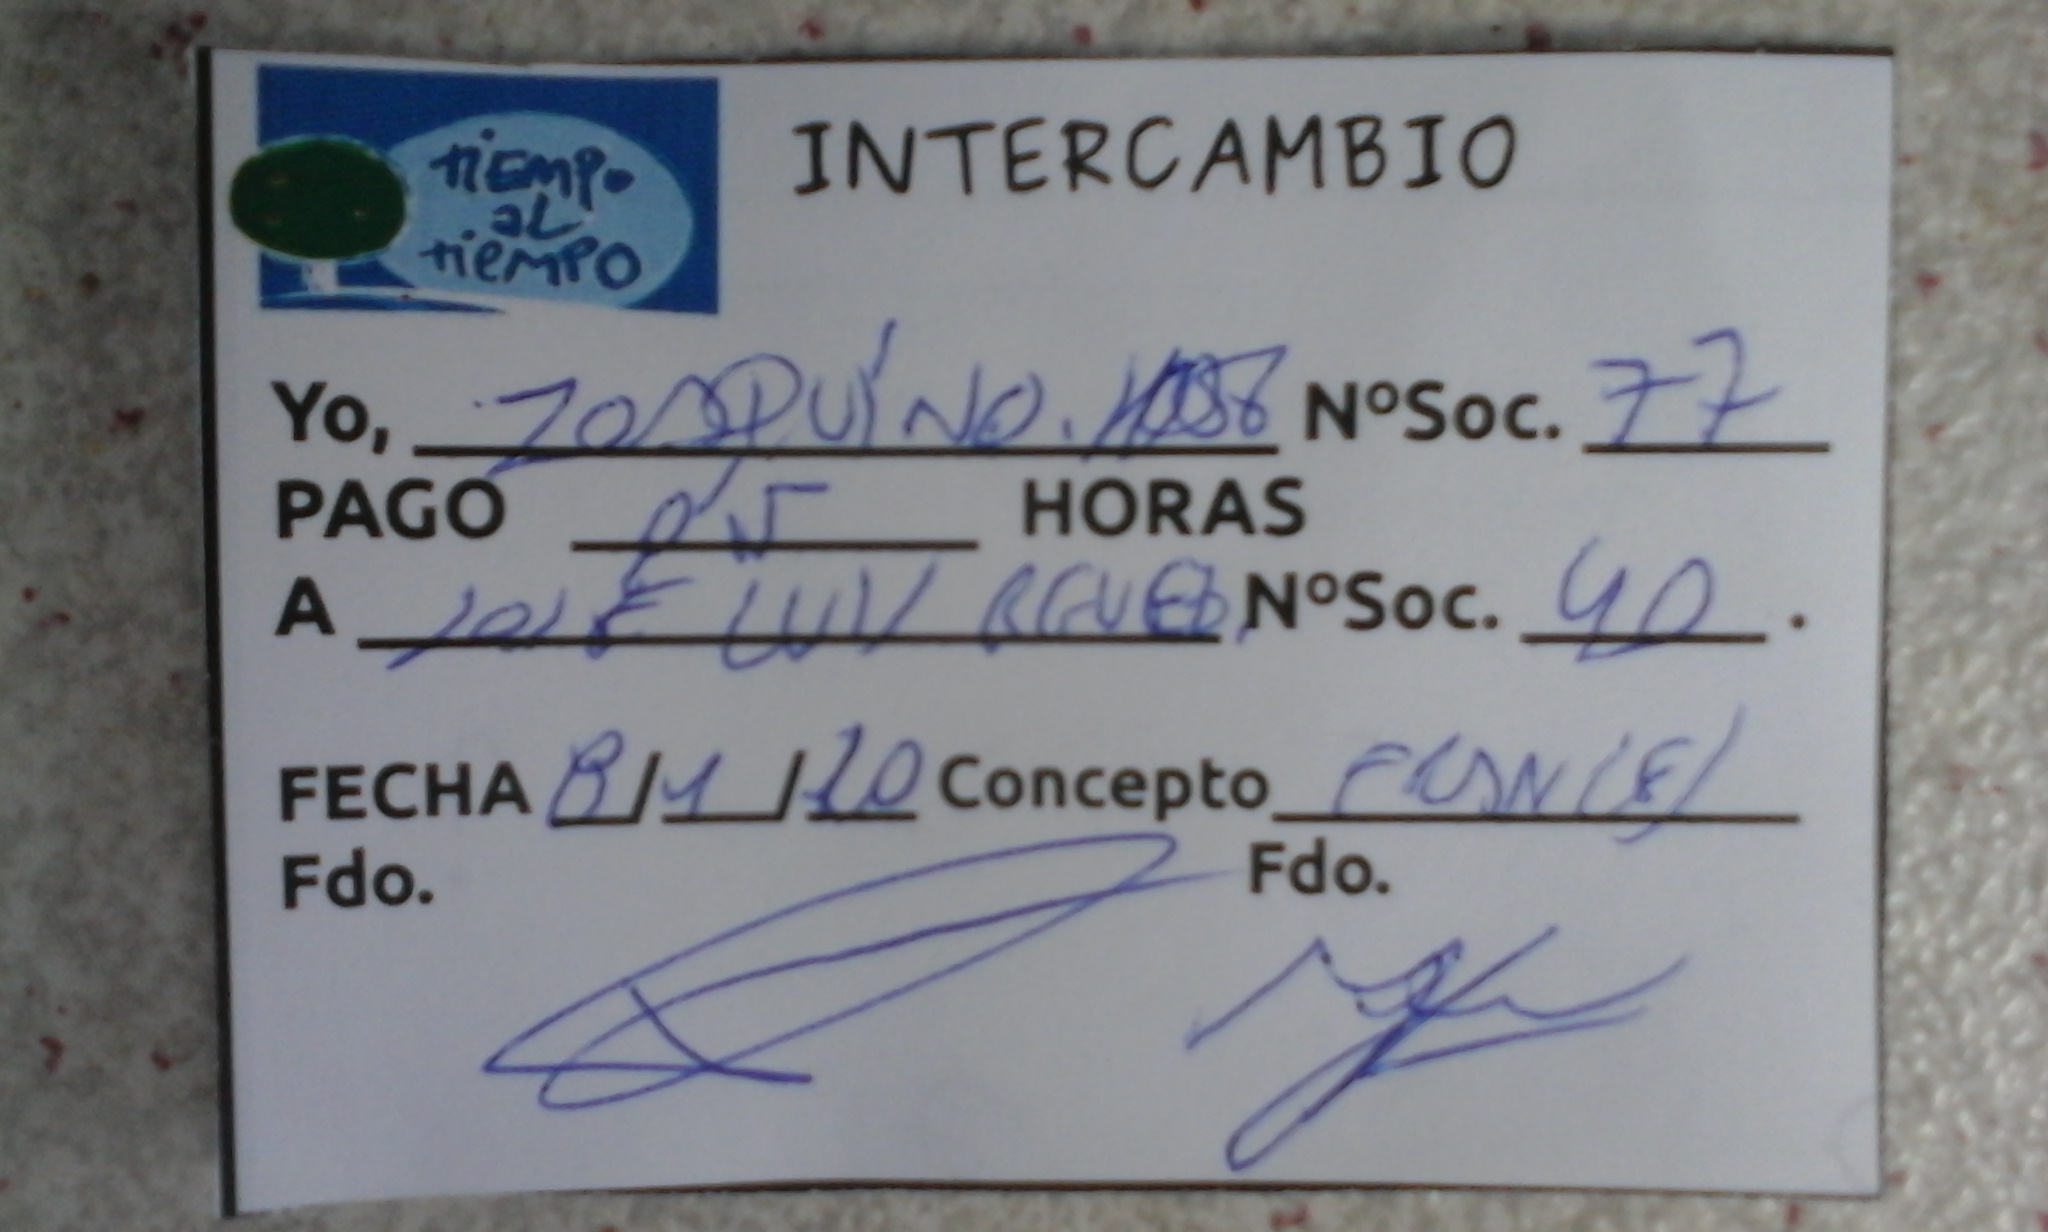 tiEMPO
aL
tiEMPO
INTERCAMBIO
Yo, JOAQUÍN O. Nº Soc. 77
PAGO HORAS
A JOSE LUIS Nº Soc. 40 .
FECHA 8/1/20 Concepto FRANCES
Fdo. Fdo.